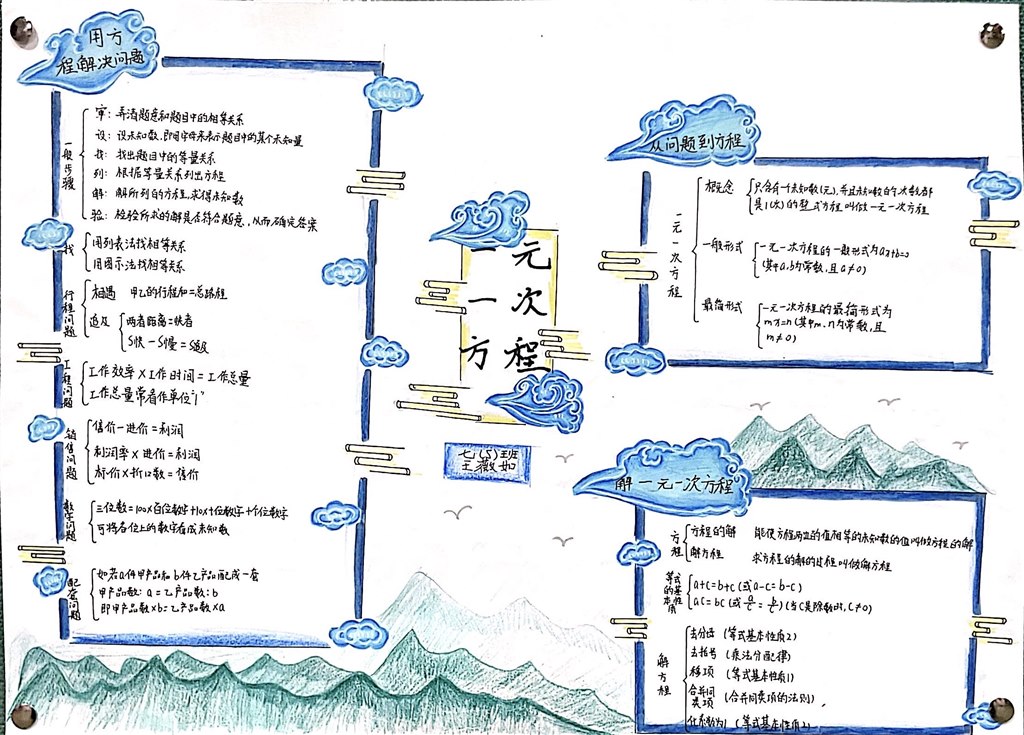 用方
程解决问题
一般步骤
审：弄清题意和题目中的相等关系
设：设未知数，即用字母来表示题目中的某个未知量
找：找出题目中的等量关系
列：根据等量关系列出方程
解：解所列的方程，求得未知数
验：检验所求的解是否符合题意，从而确定答案
找
用列表法找相等关系
用图示法找相等关系
行程问题
相遇 甲乙的行程和=总路程
追及
两者距离=快者
S快-S慢=S追及
工程问题
工作效率×工作时间=工作总量
工作总量常看作单位"1"
销售问题
售价-进价=利润
利润率×进价=利润
标价×折扣数=售价
数字问题
三位数=100×百位数字+10×十位数字+个位数字
可将各位上的数字看成未知数
配套问题
如若a件甲产品和b件乙产品配成一套
甲产品数：a=乙产品数：b
即甲产品数×b=乙产品数×a
一元
一次
方程
七(5)班
王薇如
从问题到方程
一元一次方程
概念
只含有一未知数(元)，并且未知数的次数都
是1(次)的整式方程叫做一元一次方程
一般形式
一元一次方程的一般形式为ax+b=0
(其中a,b为常数，且a≠0)
最简形式
一元一次方程的最简形式为
mx=n(其中m,n为常数，且
m≠0)
解一元一次方程
方程
方程的解 能使方程两边的值相等的未知数的值叫做方程的解
解方程 求方程的解的过程叫做解方程
等式的基本性质
a+c=b+c(或a-c=b-c)
ac=bc(或a/c=b/c)(当c是除数时，c≠0)
解方程
去分母(等式基本性质2)
去括号(乘法分配律)
移项(等式基本性质1)
合并同
类项(合并同类项的法则)
化系数为1(等式基本性质2)